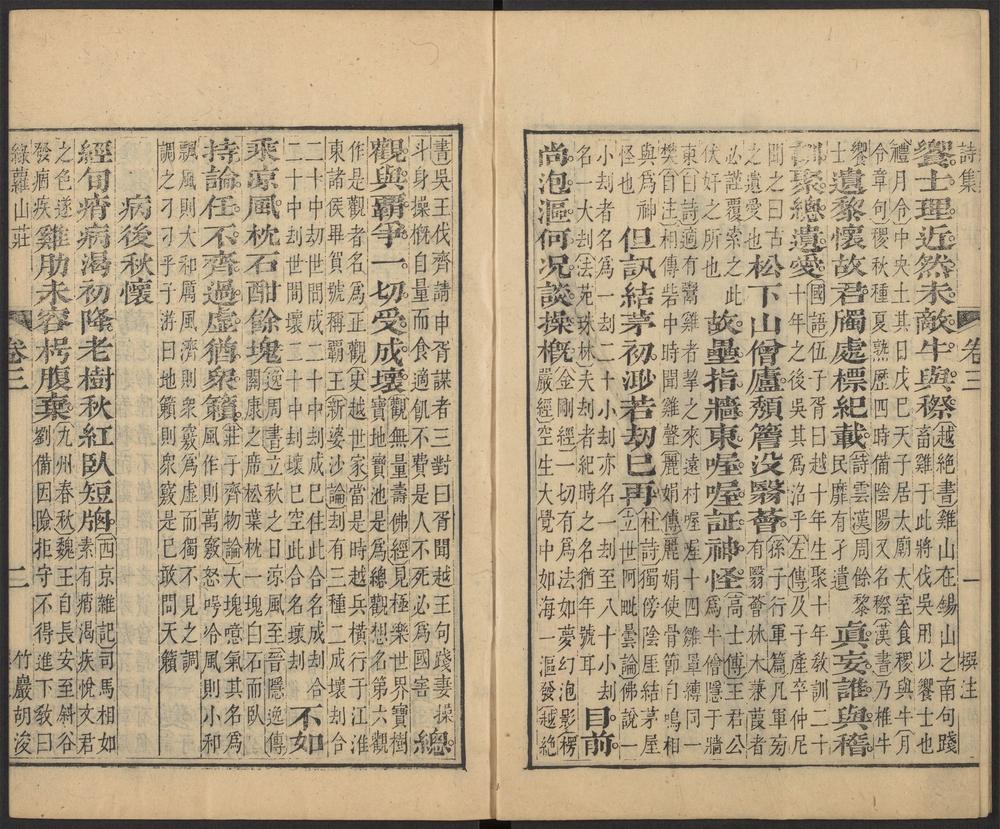 詩集　卷三　一　撰注
饗士理近然未敵牛與穄
越絕書雞山在錫山之南句踐
畜雞于此將伐吳用以饗士也
禮月令中央土其日戊巳天子居太廟太室食稷與牛月
令章句稷秋種夏熟歷四時備陰陽又名穄漢書乃椎牛
饗
士
遺黎懷故君屬處標紀載
詩雲漢周餘黎
民靡有孑遺
眞妄誰與稽
訓聚總遺愛
國語伍子胥曰越十年生聚十年敎訓二十
十年之後吳其爲沼乎左傳及子產卒仲尼
聞之曰古
之遺愛也
松下山僧廬頹簷没翳薈
孫子行軍篇凡軍旁
有翳薈林木蒹葭者
必謹覆索之此
伏奸之所也
故壘指牆東喔喔証神怪
高士傳王君公
爲牛儈隱于牆
東白詩適有鬻雞者挈之來遠村喔喔十四雛罩縛同一
樊自注相傳砦中時聞雞聲麗娟傳麗娟使骨節自鳴相
與爲神
怪也
但訊結茅初渺若劫巳再
杜詩獨傍陰崖結茅屋
立世阿毗曇論佛說一
小劫者名爲一劫二十小劫亦名一劫至八十小劫
名一大劫法苑珠林夫劫者紀時之名猶年號耳
目前
尚泡漚何况談操槪
金剛經一切有爲法如夢幻泡影楞
嚴經空生大覺中如海一漚發越絕
書吳王伐齊請申胥謀者三對曰胥聞越王句踐妻操
斗身操槪自量而食適飢不費是人不死必爲國害
總
觀與覇爭一切受成壞
觀無量壽佛經見極樂世界寶樹
寶地寶池是爲總觀想名第六觀
作是觀者名爲正觀史越世家當是時越兵橫行于江淮
東諸侯畢賀號稱覇王新婆沙論劫有三種二成壞劫合
二十中劫世間成二十中劫成巳住此合名成劫
二十中劫世間壞二十中劫壞巳空此合名壞劫
不如
乘凉風枕石酣餘塊
逸周書立秋之日凉風至晉隱逸傳
關康之席松葉枕一塊白石而臥
持論任不齊過虛猶衆籟
莊子齊物論大塊噫氣其名爲
風作則萬竅怒呺泠風則小和
飄風則大和厲風濟則衆竅爲虛而獨不見之
調調之刁刁乎子游曰地籟則衆竅是巳敢問天籟
病後秋懷
經旬痟病渴初降老樹秋紅臥短牕
西京雜記司馬相如
素有痟渴疾悅文君
之色遂
發痼疾
雞肋未容楞腹棄
九州春秋魏王自長安至斜谷
劉備因險拒守不得進下敎曰
綠蘿山莊　卷三　二　竹巖胡浚